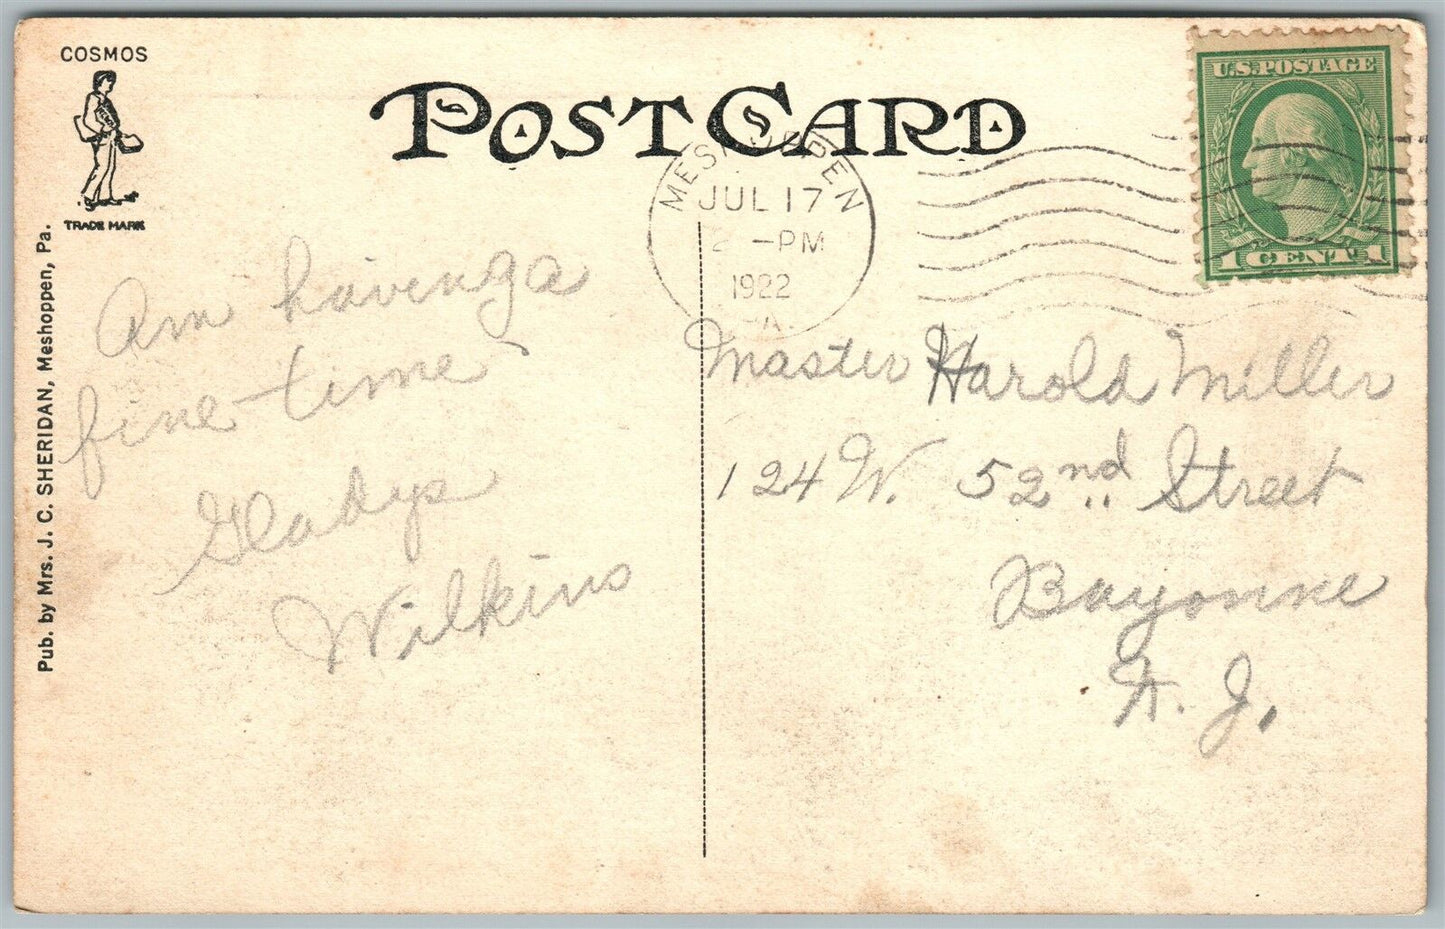 COSMOS
TRADE MARK
POST CARD
U.S. POSTAGE
1 CENT 1
MESHOPPEN
JUL 17
-PM
1922
PA.
Pub. by Mrs. J. C. SHERIDAN, Meshoppen, Pa.
Am having a
fine time
Gladys
Wilkins
Master Harold Miller
124 W. 52nd Street
Bayonne
N. J.